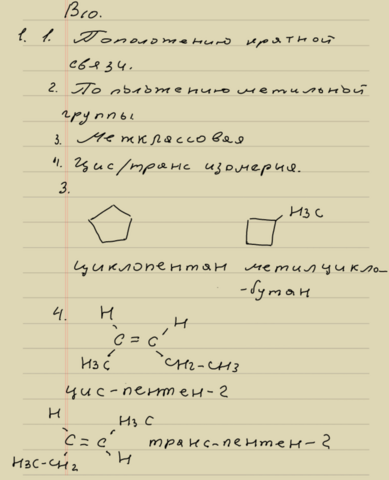 В10.
1. 1. По положению кратной
связи.
2. По положению метильной
группы
3. Межклассовая
4. Цис/транс изомерия.
3.
H3C
циклопентан метилцикло-
-бутан
4. H H
C = C
H3C CH2-CH3
цис-пентен-2
H H3C
C = C транс-пентен-2
H3C-CH2 H